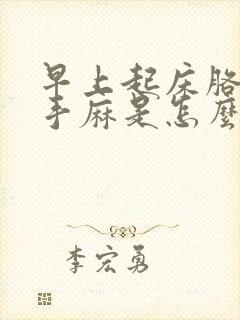 早上起床胳
手麻是怎麼
李宏勇